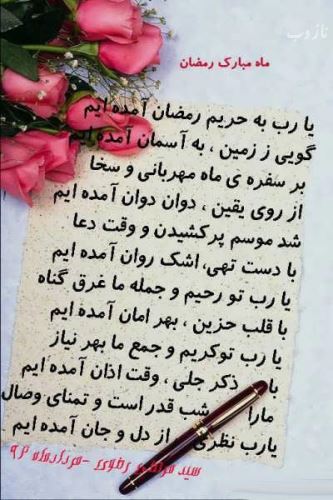 ناز وب
ماه مبارک رمضان
یا رب به حریم رمضان آمده ایم
گویی ز زمین ، به آسمان آمده ایم
بر سفره ی ماه مهربانی و سخا
از روی یقین ، دوان دوان آمده ایم
شد موسم پر کشیدن و وقت دعا
با دست تهی، اشک روان آمده ایم
یا رب تو رحیم و جمله ما غرق گناه
با قلب حزین ، بهر امان آمده ایم
یا رب توکریم و جمع ما بهر نیاز
با ذکر جلی ، وقت اذان آمده ایم
مارا شب قدر است و تمنای وصال
یارب نظری از دل و جان آمده ایم
سید مرتضی رضوی - مردادماه ۹۴